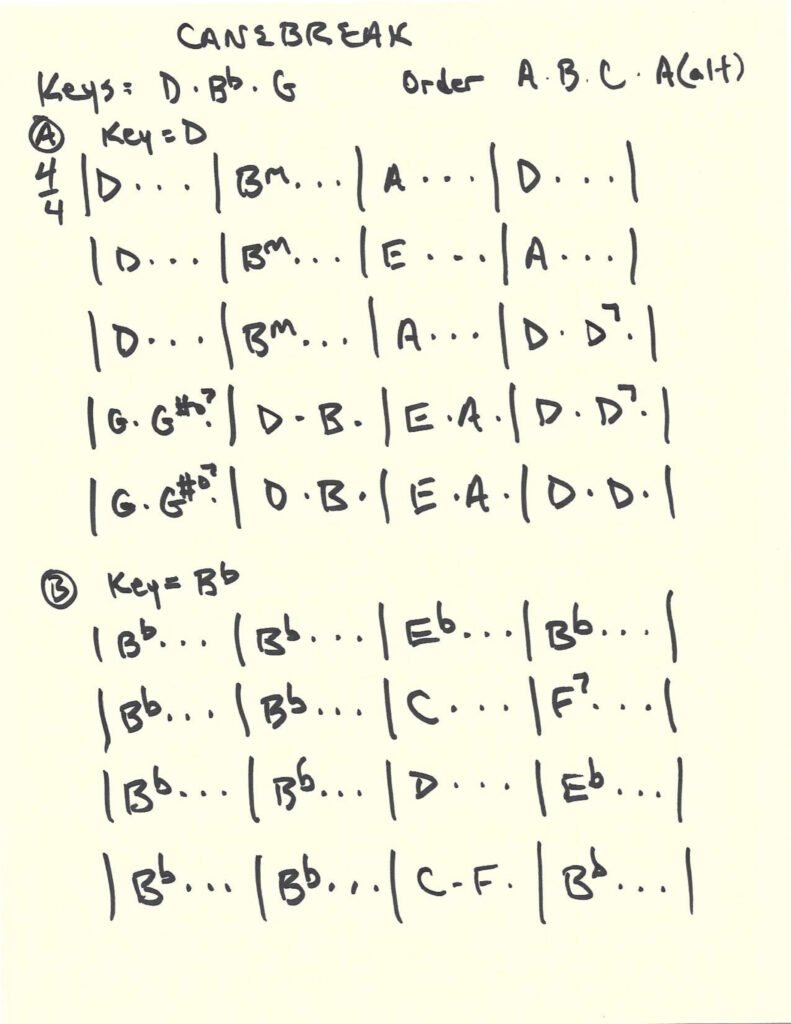 CANEBREAK
Keys: D · Bb · G Order A · B · C · A(alt)
Ⓐ Key = D
4/4 | D · · · | Bm · · · | A · · · | D · · · |
| D · · · | Bm · · · | E · · · | A · · · |
| D · · · | Bm · · · | A · · · | D · D7 · |
| G · G#o7 · | D · B · | E · A · | D · D7 · |
| G · G#o7 · | D · B · | E · A · | D · D · |
Ⓑ Key = Bb
| Bb · · · | Bb · · · | Eb · · · | Bb · · · |
| Bb · · · | Bb · · · | C · · · | F7 · · · |
| Bb · · · | Bb · · · | D · · · | Eb · · · |
| Bb · · · | Bb · · · | C - F · | Bb · · · |